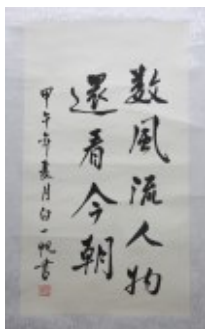 数風流人物
還看今朝
甲午年夏月白一帆書